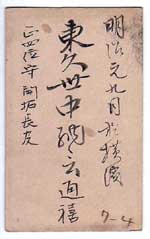 明治元九月於横濱
東久世中納言通禧
正四位守 開拓長友
7-4